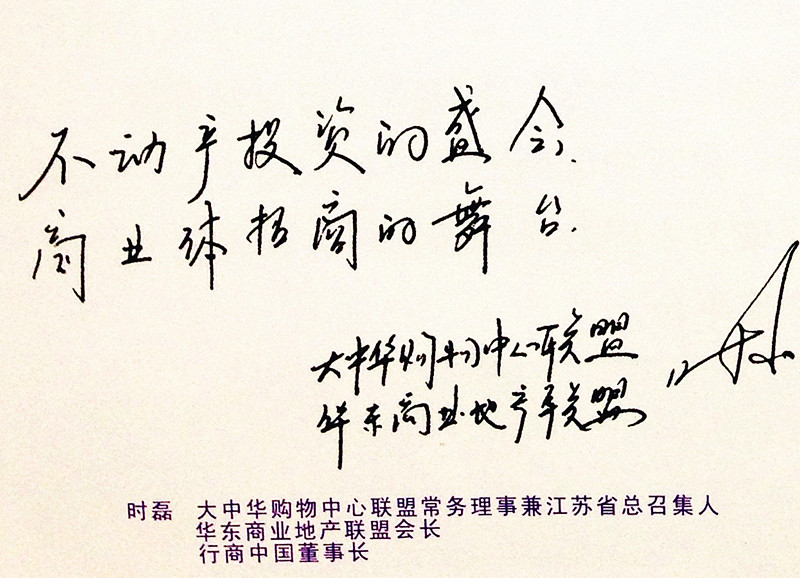 不动产投资的盛会.
商业体招商的舞台.
大中华购物中心联盟
华东商业地产联盟
时磊 大中华购物中心联盟常务理事兼江苏省总召集人
华东商业地产联盟会长
行商中国董事长